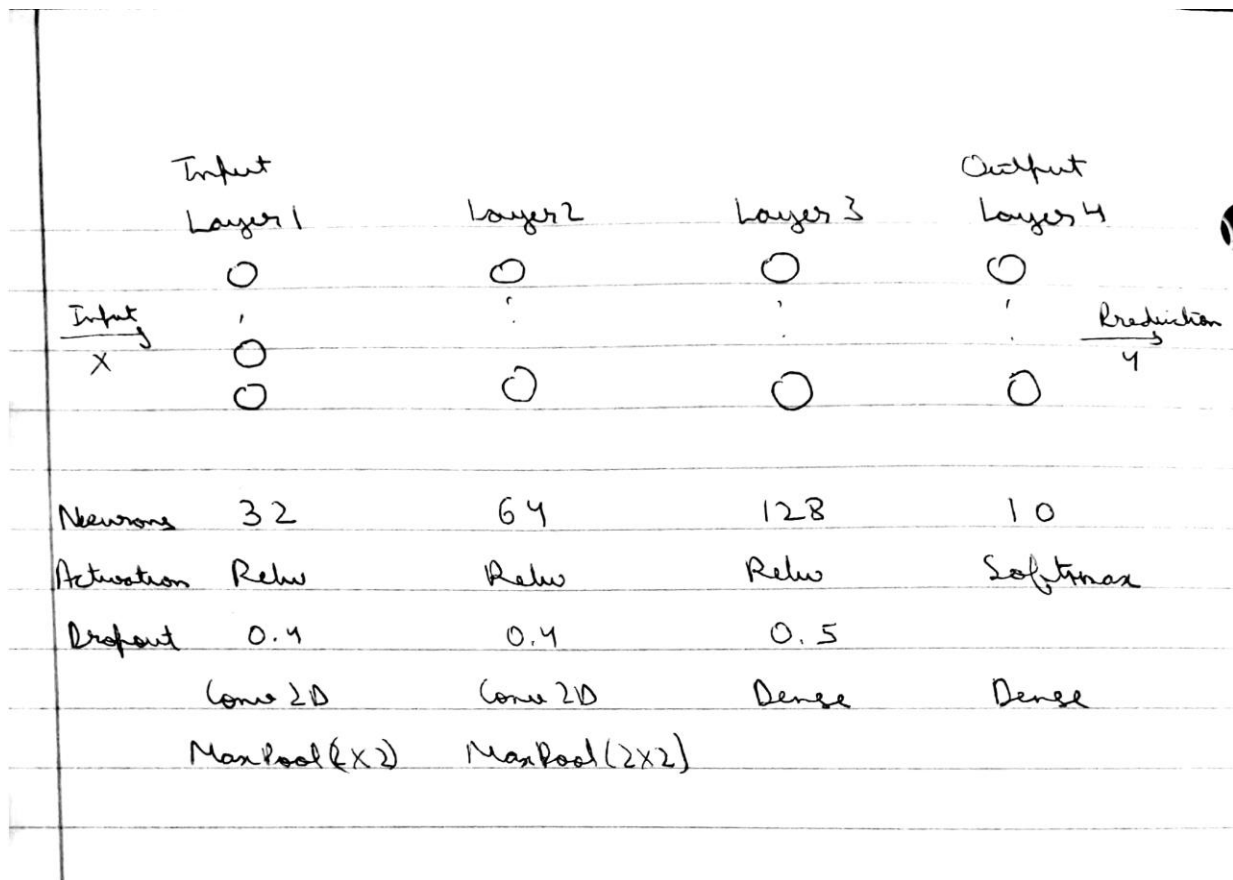 Input Output
Layer 1 Layer 2 Layer 3 Layer 4
Input Prediction
X Y
Neurons 32 64 128 10
Activation Relu Relu Relu Softmax
Dropout 0.4 0.4 0.5
Conv 2D Conv 2D Dense Dense
MaxPool (2X2) MaxPool (2X2)